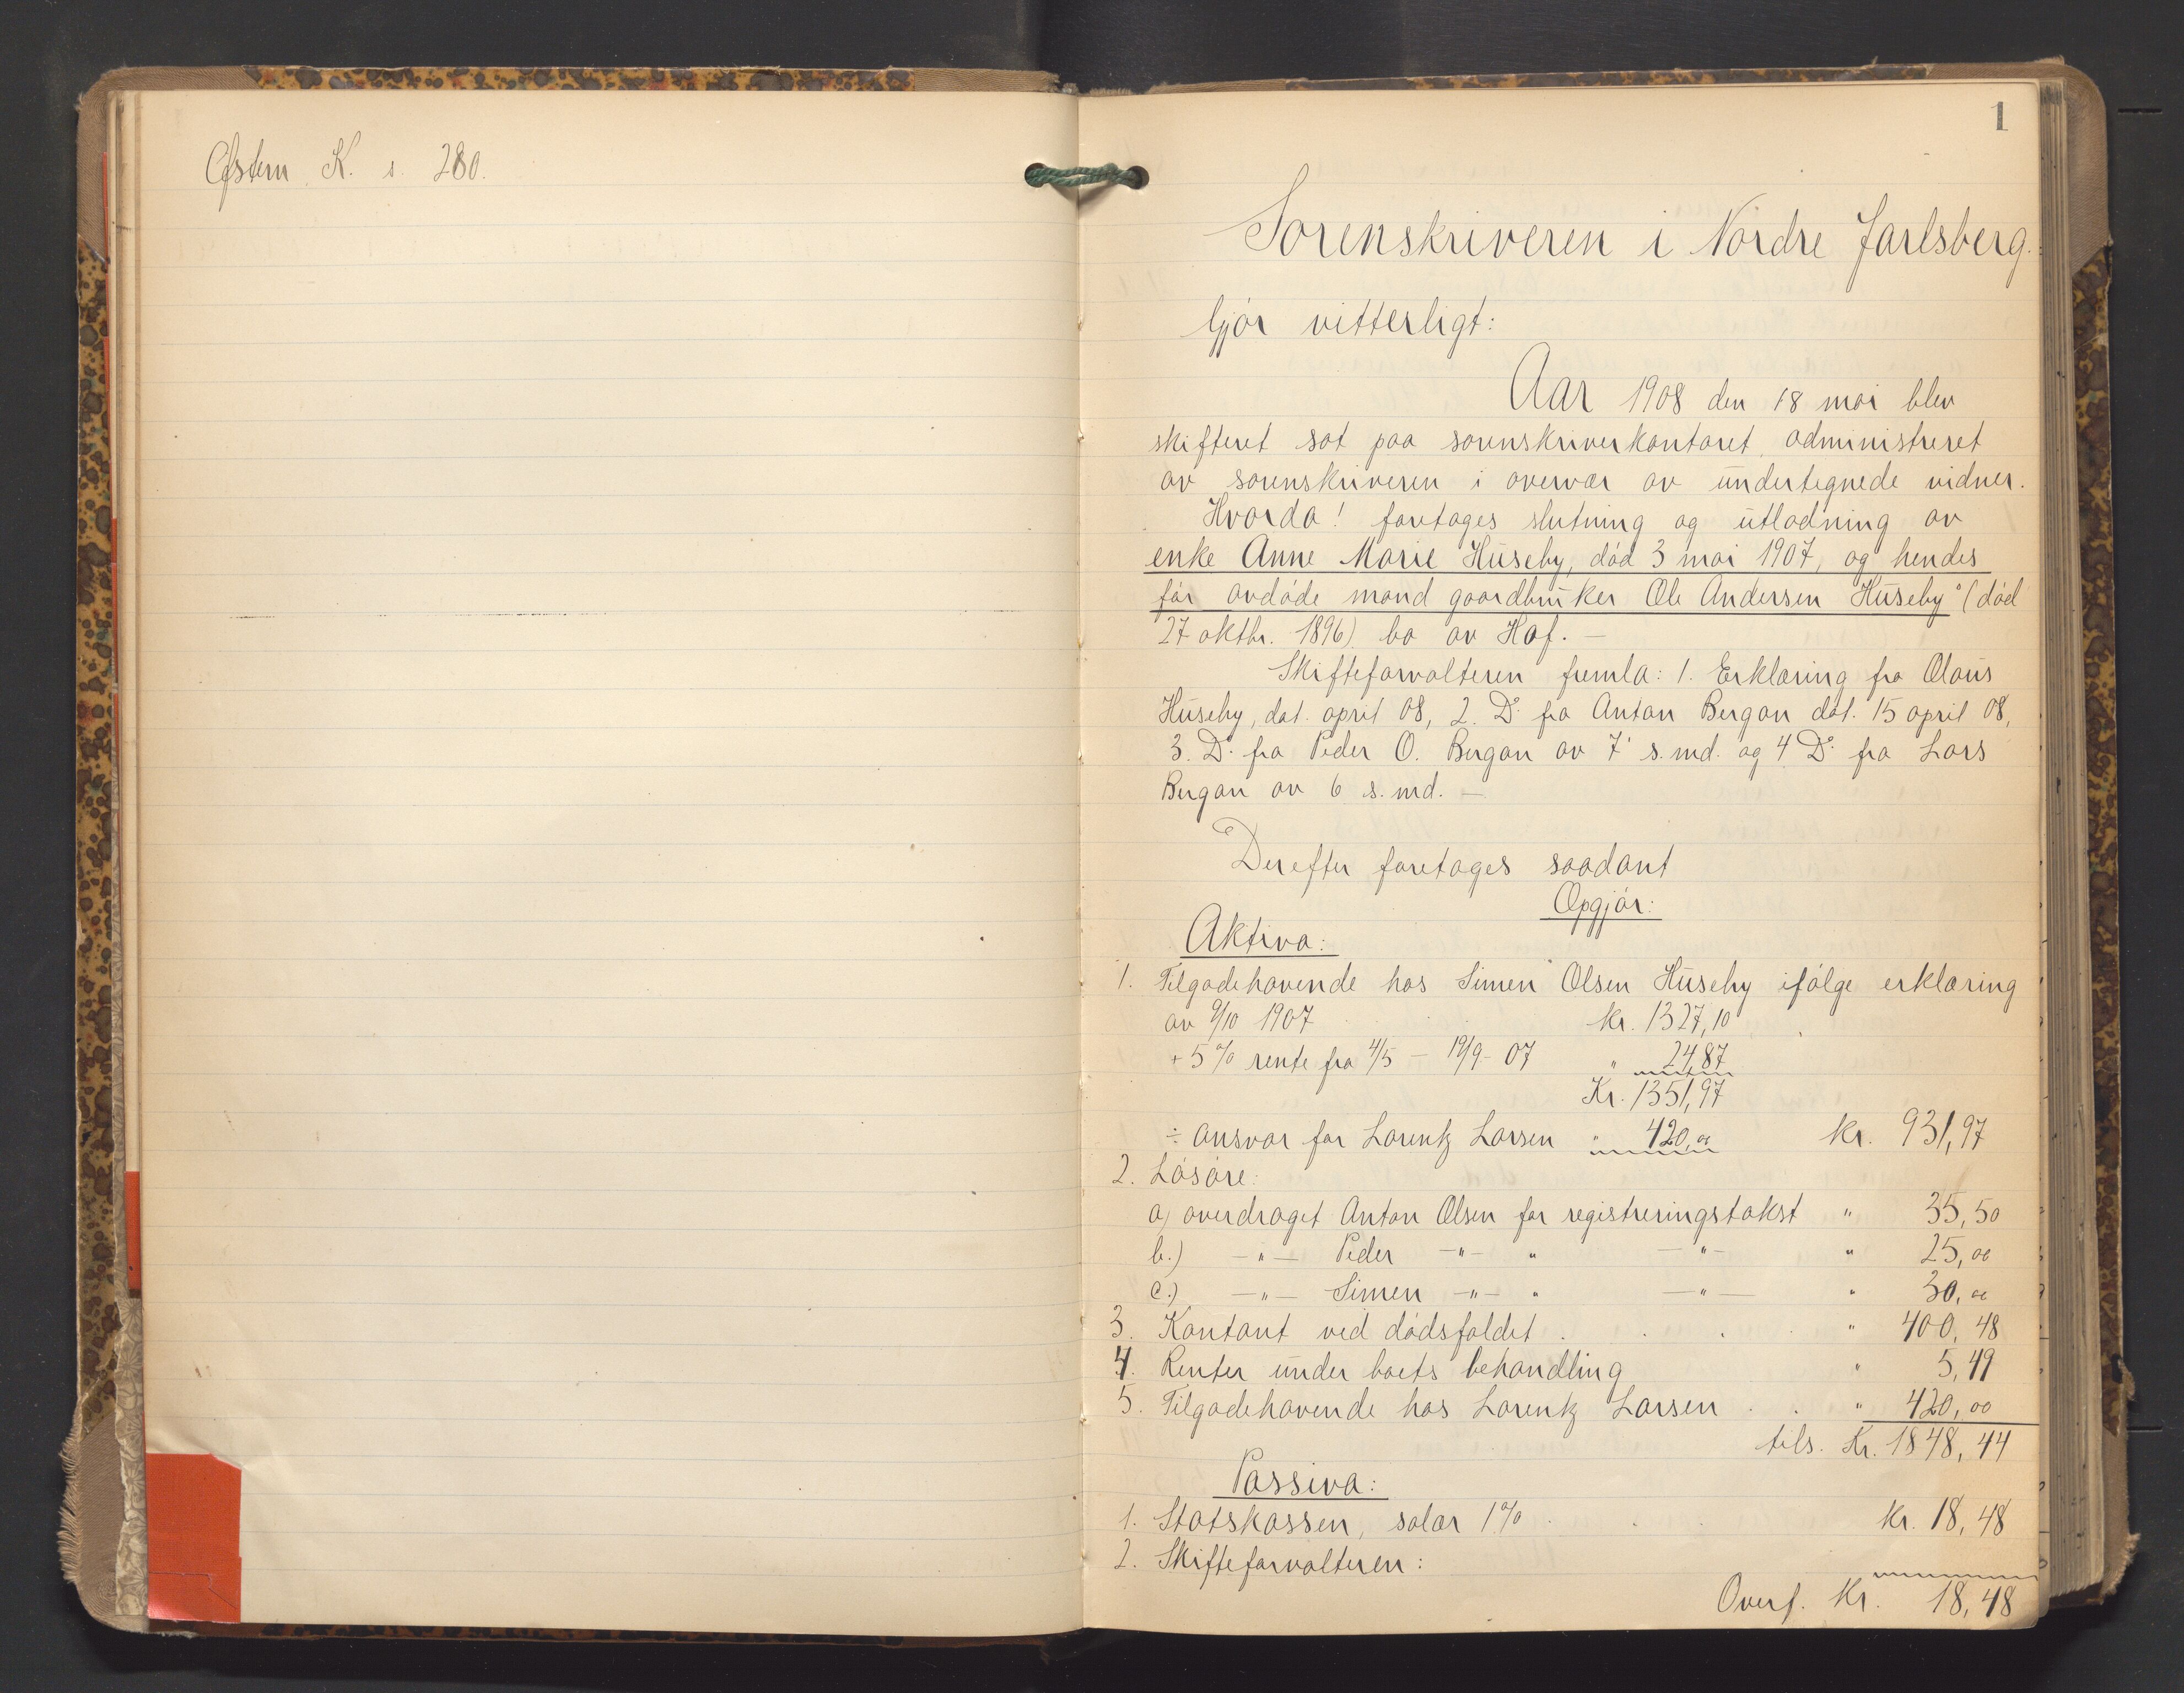 Østern K. s. 280.
1
Sorenskriveren i Nordre Jarlsberg.
Gjør vitterligt:
Aar 1908 den 18 mai blev
skifteret sat paa sorenskriverkontoret, administreret
av sorenskriveren i overvær av undertegnede vidner.
Hvorda! foretages slutning og utlodning av
enke Anne Marie Huseby, død 3 mai 1907, og hendes
før avdøde mand gaardbruker Ole Andersen Huseby's (død
27 oktbr. 1896) bo av Hof. —
Skifteforvalteren fremla: 1. Erklæring fra Olaus
Huseby, dat. april 08, 2. Do. fra Anton Bergan dat. 15 april 08,
3. Do. fra Peder O. Bergan av 7 s. md. og 4 Do. fra Lars
Bergan av 6 s. md. —
Derefter foretages saadant
Opgjør:
Aktiva:
1. Tilgodehavende hos Simen Olsen Huseby ifølge erklæring
av 9/10 1907 kr. 1327,10
+ 5 % rente fra 4/5 – 19/9 – 07 " 24,87
Kr. 1351,97
÷ ansvar for Lorentz Larsen " 420,00 kr. 931,97
2. Løsøre:
a) overdraget Anton Olsen for registreringstakst " 35,50
b.) —"— Peder —"— " —"— " 25,00
c.) —"— Simen —"— " —"— " 30,00
3. Kontant ved dødsfaldet . . . . " 400,48
4. Renter under boets behandling " 5,49
5. Tilgodehavende hos Lorentz Larsen . . " 420,00
tils. Kr. 1848,44
Passiva:
1. Statskassen, salær 1% . . . kr. 18,48
2. Skifteforvalteren:
Overf. Kr. 18,48